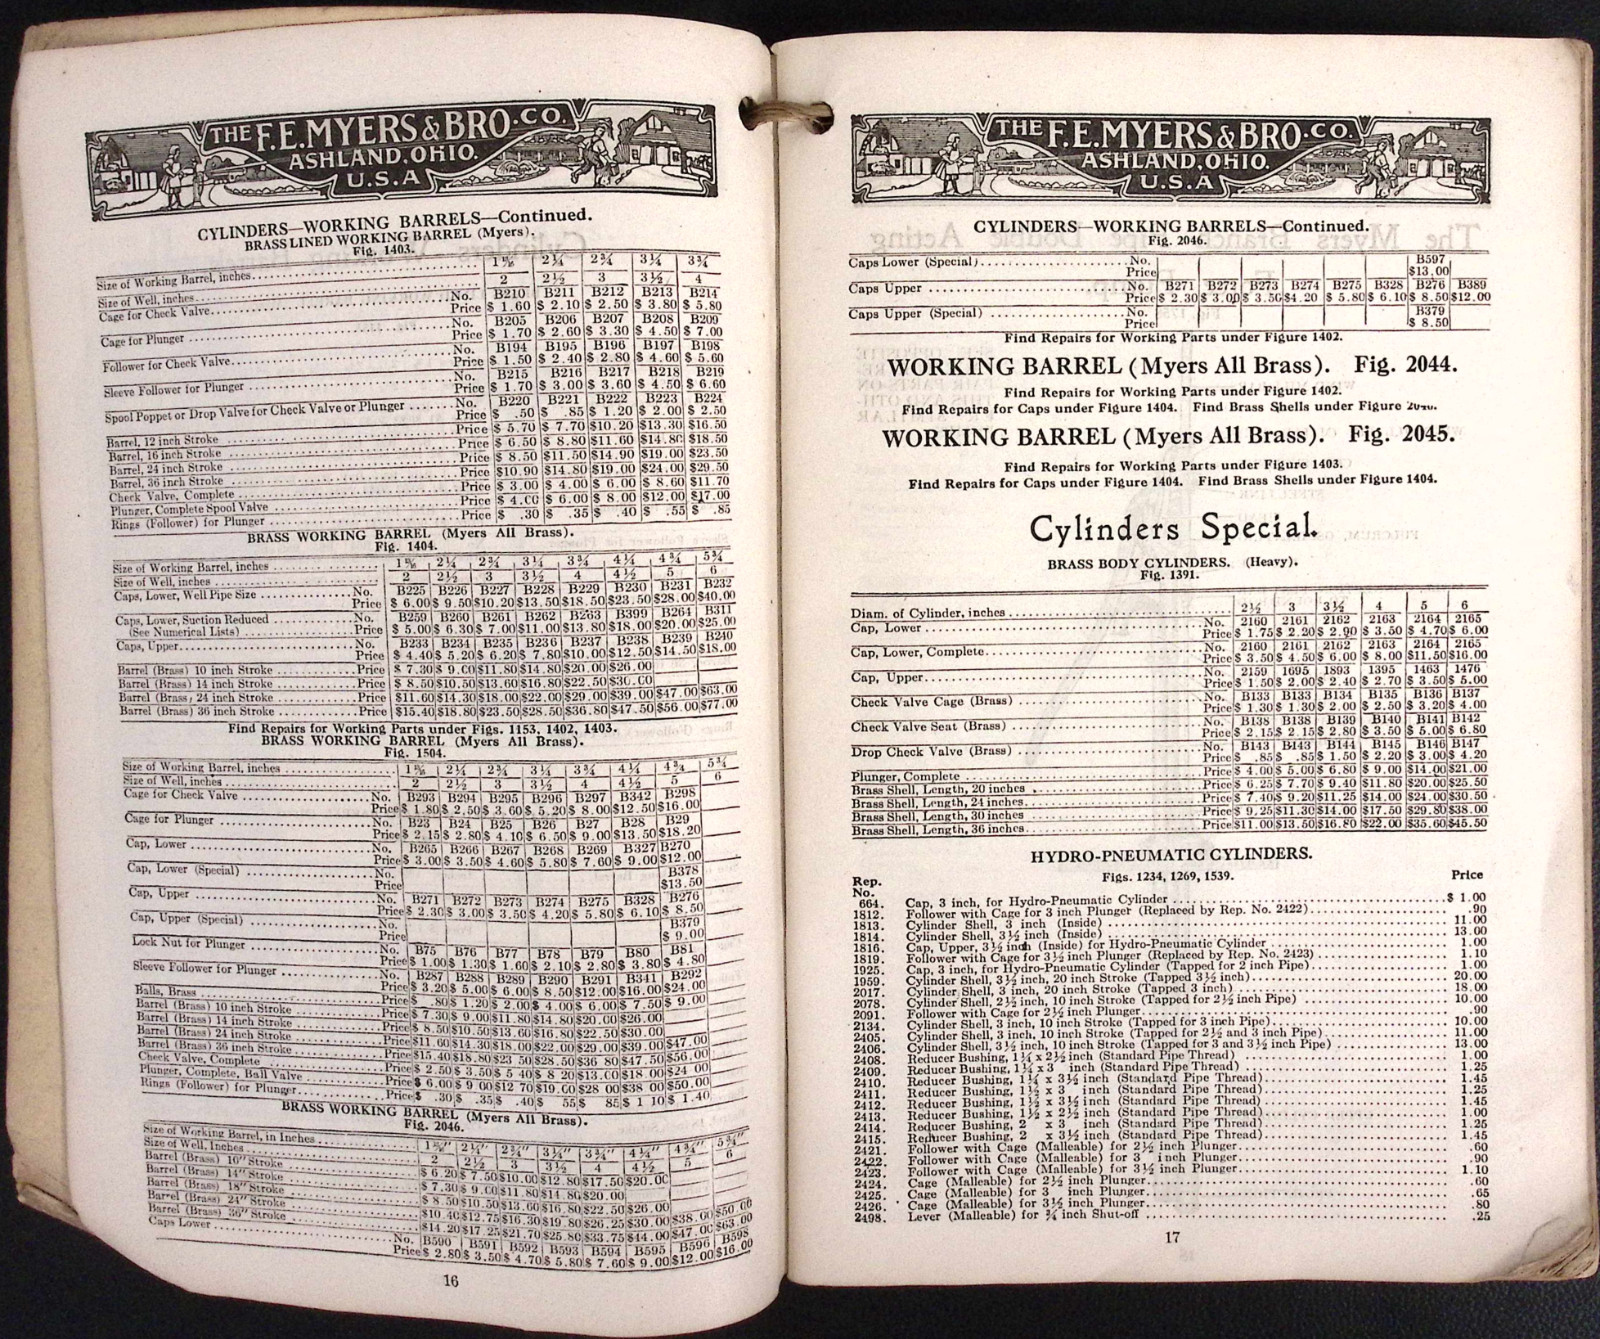 THE F.E. MYERS & BRO. CO.
ASHLAND, OHIO.
U.S.A
CYLINDERS—WORKING BARRELS—Continued.
BRASS LINED WORKING BARREL (Myers).
Fig. 1403.
Size of Working Barrel, inches 1⅝ 2¼ 2¾ 3¼ 3¾
Size of Well, inches 2 2½ 3 3½ 4
Cage for Check Valve No. B210 B211 B212 B213 B214
Price $ 1.60 $ 2.10 $ 2.50 $ 3.80 $ 5.80
Cage for Plunger No. B205 B206 B207 B208 B209
Price $ 1.70 $ 2.60 $ 3.30 $ 4.50 $ 7.00
Follower for Check Valve No. B194 B195 B196 B197 B198
Price $ 1.50 $ 2.40 $ 2.80 $ 4.60 $ 5.60
Sleeve Follower for Plunger No. B215 B216 B217 B218 B219
Price $ 1.70 $ 3.00 $ 3.60 $ 4.50 $ 6.60
Spool Poppet or Drop Valve for Check Valve or Plunger No. B220 B221 B222 B223 B224
Price $ .50 $ .85 $ 1.20 $ 2.00 $ 2.50
Barrel, 12 inch Stroke Price $ 5.70 $ 7.70 $10.20 $13.30 $16.50
Barrel, 16 inch Stroke Price $ 6.50 $ 8.80 $11.60 $14.80 $18.50
Barrel, 24 inch Stroke Price $ 8.50 $11.50 $14.90 $19.00 $23.50
Barrel, 36 inch Stroke Price $10.90 $14.80 $19.00 $24.00 $29.50
Check Valve, Complete Price $ 3.00 $ 4.00 $ 6.00 $ 8.60 $11.70
Plunger, Complete Spool Valve Price $ 4.00 $ 6.00 $ 8.00 $12.00 $17.00
Rings (Follower) for Plunger Price $ .30 $ .35 $ .40 $ .55 $ .85
BRASS WORKING BARREL (Myers All Brass).
Fig. 1404.
Size of Working Barrel, inches 1⅝ 2¼ 2¾ 3¼ 3¾ 4¼ 4¾ 5¾
Size of Well, inches 2 2½ 3 3½ 4 4½ 5 6
Caps, Lower, Well Pipe Size No. B225 B226 B227 B228 B229 B230 B231 B232
Price $ 6.00 $ 9.50 $10.20 $13.50 $18.50 $23.50 $28.00 $40.00
Caps, Lower, Suction Reduced No. B259 B260 B261 B262 B263 B399 B264 B311
(See Numerical Lists) Price $ 5.00 $ 6.30 $ 7.00 $11.00 $13.80 $18.00 $20.00 $25.00
Caps, Upper No. B233 B234 B235 B236 B237 B238 B239 B240
Price $ 4.40 $ 5.20 $ 6.20 $ 7.80 $10.00 $12.50 $14.50 $18.00
Barrel (Brass) 10 inch Stroke Price $ 7.30 $ 9.00 $11.80 $14.80 $20.00 $26.00
Barrel (Brass) 14 inch Stroke Price $ 8.50 $10.50 $13.60 $16.80 $22.50 $30.00
Barrel (Brass) 24 inch Stroke Price $11.60 $14.30 $18.00 $22.00 $29.00 $39.00 $47.00 $63.00
Barrel (Brass) 36 inch Stroke Price $15.40 $18.80 $23.50 $28.50 $36.80 $47.50 $56.00 $77.00
Find Repairs for Working Parts under Figs. 1153, 1402, 1403.
BRASS WORKING BARREL (Myers All Brass).
Fig. 1504.
Size of Working Barrel, inches 1⅝ 2¼ 2¾ 3¼ 3¾ 4¼ 4¾ 5¾
Size of Well, inches 2 2½ 3 3½ 4 4½ 5 6
Cage for Check Valve No. B293 B294 B295 B296 B297 B342 B298
Price $ 1.80 $ 2.50 $ 3.60 $ 5.20 $ 8.00 $12.50 $16.00
Cage for Plunger No. B23 B24 B25 B26 B27 B28 B29
Price $ 2.15 $ 2.80 $ 4.10 $ 6.50 $ 9.00 $13.50 $18.20
Cap, Lower No. B265 B266 B267 B268 B269 B327 B270
Price $ 3.00 $ 3.50 $ 4.60 $ 5.80 $ 7.60 $ 9.00 $12.00
Cap, Lower (Special) No. B378
Price $13.50
Cap, Upper No. B271 B272 B273 B274 B275 B328 B276
Price $ 2.30 $ 3.00 $ 3.50 $ 4.20 $ 5.80 $ 6.10 $ 8.50
Cap, Upper (Special) No. B379
Price $ 9.00
Lock Nut for Plunger No. B75 B76 B77 B78 B79 B80 B81
Price $ 1.00 $ 1.30 $ 1.60 $ 2.10 $ 2.80 $ 3.80 $ 4.80
Sleeve Follower for Plunger No. B287 B288 B289 B290 B291 B341 B292
Price $ 3.20 $ 5.00 $ 6.00 $ 8.50 $12.00 $16.00 $24.00
Balls, Brass Price $ .80 $ 1.20 $ 2.00 $ 4.00 $ 6.00 $ 7.50 $ 9.00
Barrel (Brass) 10 inch Stroke Price $ 7.30 $ 9.00 $11.80 $14.80 $20.00 $26.00
Barrel (Brass) 14 inch Stroke Price $ 8.50 $10.50 $13.60 $16.80 $22.50 $30.00
Barrel (Brass) 24 inch Stroke Price $11.60 $14.30 $18.00 $22.00 $29.00 $39.00 $47.00
Barrel (Brass) 36 inch Stroke Price $15.40 $18.80 $23 50 $28.50 $36 80 $47.50 $56.00
Check Valve, Complete Price $ 2.50 $ 3.50 $ 5 40 $ 8 20 $13.00 $18.00 $24 00
Plunger, Complete, Ball Valve Price $ 6.00 $ 9 00 $12 70 $19.00 $28 00 $38 00 $50.00
Rings (Follower) for Plunger Price $ .30 $ .35 $ .40 $ 55 $ 85 $ 1 10 $ 1.40
BRASS WORKING BARREL (Myers All Brass).
Fig. 2046.
Size of Working Barrel, in Inches 1⅝" 2¼" 2¾" 3¼" 3¾" 4¼" 4¾" 5¾"
Size of Well, Inches 2 2½ 3 3½ 4 4½ 5 6
Barrel (Brass) 10" Stroke $ 6.20 $ 7.50 $10.00 $12.80 $17.50 $20.00
Barrel (Brass) 14" Stroke $ 7.30 $ 9.00 $11.80 $14.80 $20.00
Barrel (Brass) 18" Stroke $ 8.50 $10.50 $13.60 $16.80 $22.50 $26.00
Barrel (Brass) 24" Stroke $10.40 $12.75 $16.30 $19.80 $26.25 $30.00 $38.00 $50.00
Barrel (Brass) 36" Stroke $14.20 $17 25 $21.70 $25.80 $33.75 $44.00 $47.00 $63.00
Caps Lower No. B590 B591 B592 B593 B594 B595 B596 B598
Price $ 2.80 $ 3.50 $ 4.70 $ 5.80 $ 7.60 $ 9.00 $12.00 $16.00
16
THE F.E. MYERS & BRO. CO.
ASHLAND, OHIO.
U.S.A
CYLINDERS—WORKING BARRELS—Continued.
Fig. 2046.
Caps Lower (Special) No. B597
Price $13.00
Caps Upper No. B271 B272 B273 B274 B275 B328 B276 B389
Price $ 2.30 $ 3.00 $ 3.50 $4.20 $ 5.80 $ 6.10 $ 8.50 $12.00
Caps Upper (Special) No. B379
Price $ 8.50
Find Repairs for Working Parts under Figure 1402.
WORKING BARREL (Myers All Brass). Fig. 2044.
Find Repairs for Working Parts under Figure 1402.
Find Repairs for Caps under Figure 1404. Find Brass Shells under Figure
WORKING BARREL (Myers All Brass). Fig. 2045.
Find Repairs for Working Parts under Figure 1403.
Find Repairs for Caps under Figure 1404. Find Brass Shells under Figure 1404.
Cylinders Special.
BRASS BODY CYLINDERS. (Heavy).
Fig. 1391.
Diam. of Cylinder, inches 2½ 3 3½ 4 5 6
Cap, Lower No. 2160 2161 2162 2163 2164 2165
Price $ 1.75 $ 2.20 $ 2.90 $ 3.50 $ 4.70 $ 6.00
Cap, Lower, Complete No. 2160 2161 2162 2163 2164 2165
Price $ 3.50 $ 4.50 $ 6.00 $ 8.00 $11.50 $16.00
Cap, Upper No. 2159 1695 1893 1395 1463 1476
Price $ 1.50 $ 2.00 $ 2.40 $ 2.70 $ 3.50 $ 5.00
Check Valve Cage (Brass) No. B133 B133 B134 B135 B136 B137
Price $ 1.30 $ 1.30 $ 2.00 $ 2.50 $ 3.20 $ 4.00
Check Valve Seat (Brass) No. B138 B138 B139 B140 B141 B142
Price $ 2.15 $ 2.15 $ 2.80 $ 3.50 $ 5.00 $ 6.80
Drop Check Valve (Brass) No. B143 B143 B144 B145 B146 B147
Price $ .85 $ .85 $ 1.50 $ 2.20 $ 3.00 $ 4.20
Plunger, Complete Price $ 4.00 $ 5.00 $ 6.80 $ 9.00 $14.00 $21.00
Brass Shell, Length, 20 inches Price $ 6.25 $ 7.70 $ 9.40 $11.80 $20.00 $25.50
Brass Shell, Length, 24 inches Price $ 7.40 $ 9.20 $11.25 $14.00 $24.00 $30.50
Brass Shell, Length, 30 inches Price $ 9.25 $11.30 $14.00 $17.50 $29.80 $38.00
Brass Shell, Length, 36 inches Price $11.00 $13.50 $16.80 $22.00 $35.60 $45.50
HYDRO-PNEUMATIC CYLINDERS.
Figs. 1234, 1269, 1539.
Rep. No. Price
664. Cap, 3 inch, for Hydro-Pneumatic Cylinder $ 1.00
1812. Follower with Cage for 3 inch Plunger (Replaced by Rep. No. 2422) .90
1813. Cylinder Shell, 3 inch (Inside) 11.00
1814. Cylinder Shell, 3½ inch (Inside) 13.00
1816. Cap, Upper, 3½ inch (Inside) for Hydro-Pneumatic Cylinder 1.00
1819. Follower with Cage for 3½ inch Plunger (Replaced by Rep. No. 2423) 1.10
1925. Cap, 3 inch, for Hydro-Pneumatic Cylinder (Tapped for 2 inch Pipe) 1.00
1959. Cylinder Shell, 3½ inch, 20 inch Stroke (Tapped 3½ inch) 20.00
2017. Cylinder Shell, 3 inch, 20 inch Stroke (Tapped 3 inch) 18.00
2078. Cylinder Shell, 2½ inch, 10 inch Stroke (Tapped for 2½ inch Pipe) 10.00
2091. Follower with Cage for 2½ inch Plunger .90
2134. Cylinder Shell, 3 inch, 10 inch Stroke (Tapped for 3 inch Pipe) 10.00
2405. Cylinder Shell, 3 inch, 10 inch Stroke (Tapped for 2½ and 3 inch Pipe) 11.00
2406. Cylinder Shell, 3½ inch, 10 inch Stroke (Tapped for 3 and 3½ inch Pipe) 13.00
2408. Reducer Bushing, 1¼ x 2½ inch (Standard Pipe Thread) 1.00
2409. Reducer Bushing, 1¼ x 3 inch (Standard Pipe Thread) 1.25
2410. Reducer Bushing, 1¼ x 3½ inch (Standard Pipe Thread) 1.45
2411. Reducer Bushing, 1½ x 3 inch (Standard Pipe Thread) 1.25
2412. Reducer Bushing, 1½ x 3½ inch (Standard Pipe Thread) 1.45
2413. Reducer Bushing, 1½ x 2½ inch (Standard Pipe Thread) 1.00
2414. Reducer Bushing, 2 x 3 inch (Standard Pipe Thread) 1.25
2415. Reducer Bushing, 2 x 3½ inch (Standard Pipe Thread) 1.45
2421. Follower with Cage (Malleable) for 2½ inch Plunger .60
2422. Follower with Cage (Malleable) for 3 inch Plunger .90
2423. Follower with Cage (Malleable) for 3½ inch Plunger 1.10
2424. Cage (Malleable) for 2½ inch Plunger .60
2425. Cage (Malleable) for 3 inch Plunger .65
2426. Cage (Malleable) for 3½ inch Plunger .80
2498. Lever (Malleable) for ¾ inch Shut-off .25
17